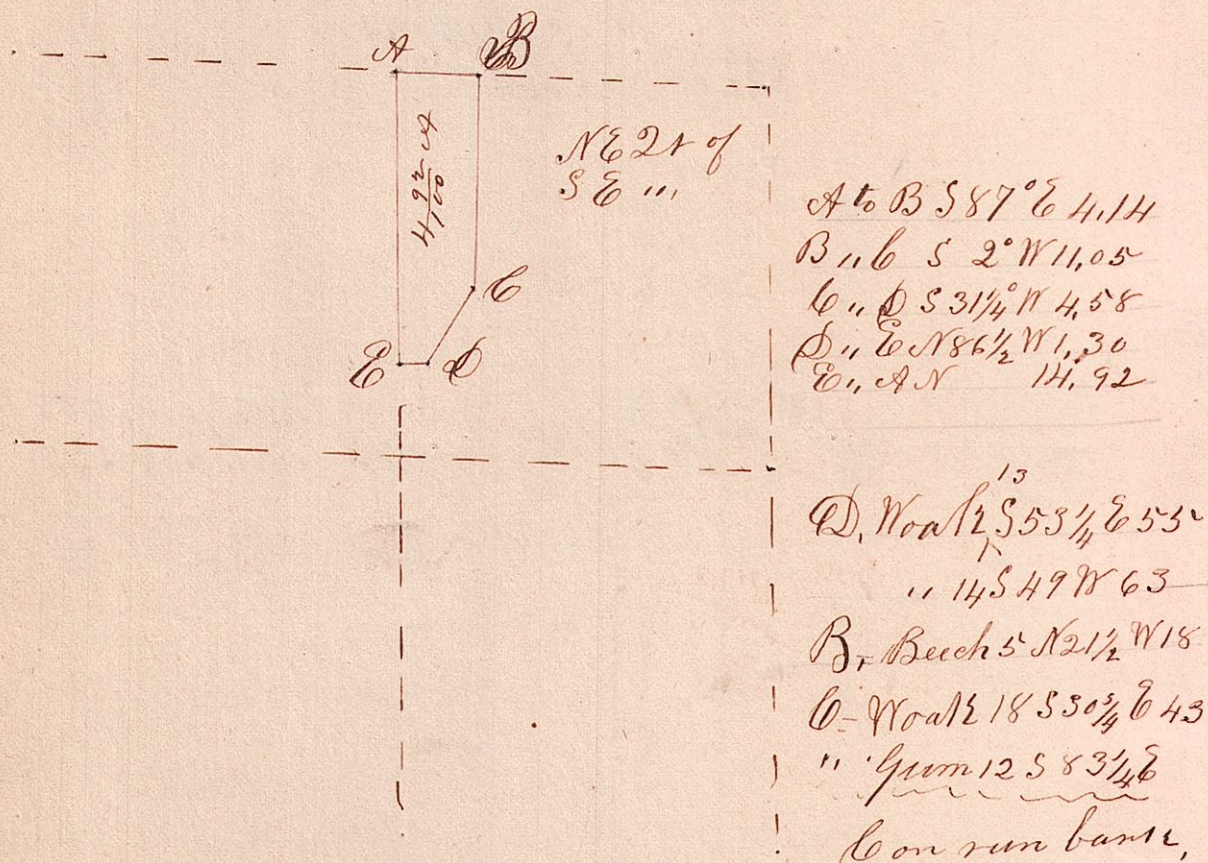 A B
4 92/100 A
NE Qr of
SE "
C
E D
A to B S 87° E 4,14
B " C S 2° W 11,05
C " D S 31 1/4° W 4,58
D " E N 86 1/2 W 1,30
E " A N 14,92
13
D, Woak ^ S 53 1/4 E 55
" 14 S 49 W 63
B, Beech 5 N 21 1/2 W 18
C - Woak 18 S 30 3/4 E 43
" Gum 12 S 83 1/4 E
C on run bank,